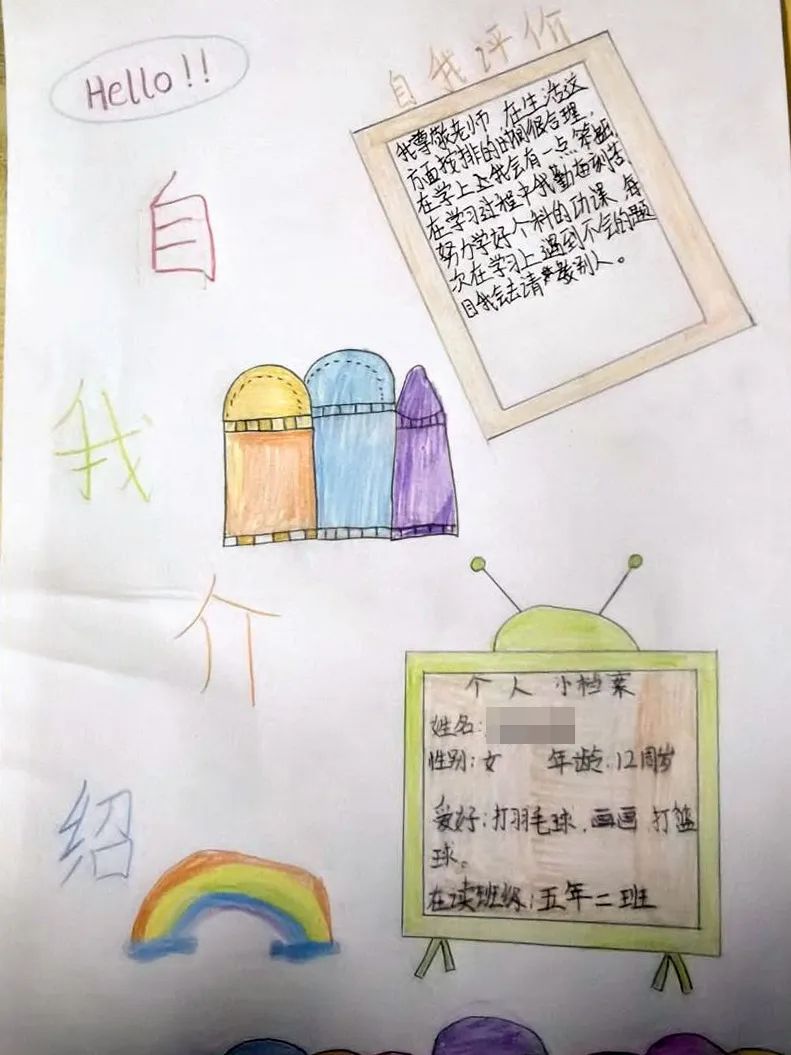 Hello!!
自我评价
我尊敬老师 在生活这
方面按排的时间很合理,
在学上上我会有一点笨拙,
在学习过程中我勤奋刻苦,
努力学好个科的功课,每
次在学习上遇到不会的题
目我会去请教别人。
自
我
介
绍
个人 小档案
姓名:
性别:女 年龄:12周岁
爱好:打羽毛球、画画 打篮
球。
在读班级:五年二班